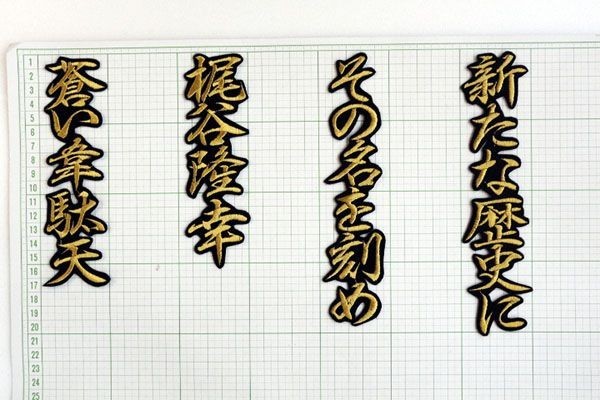 新たな歴史に
その名を刻め
梶谷隆幸
蒼い韋駄天
1
2
3
4
5
6
7
8
9
10
11
12
13
14
15
16
17
18
19
20
21
22
23
24
25